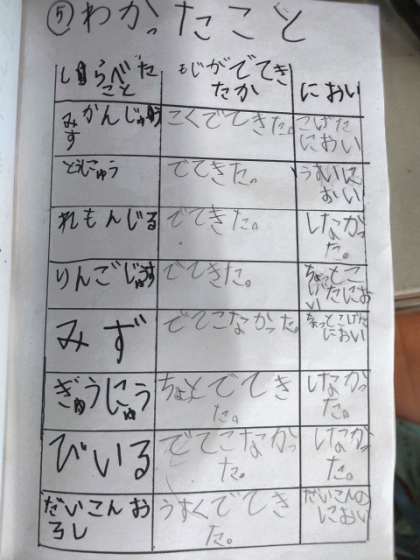 ⑤わかったこと
しらべたこと もじがでてきたか におい
みかんじゅうす こくでてきた。 こげたにおい
とうにゅう でてきた。 うすいにおい
れもんじる でてきた。 しなかった。
りんごじゅうす でてきた。 ちょっとこげたにおい
みず でてこなかった。 ちょっとこげたにおい
ぎゅうにゅう ちょっとでてきた。 しなかった。
びいる でてこなかった。 しなかった。
だいこんおろし うすくでてきた。 だいこんのにおい